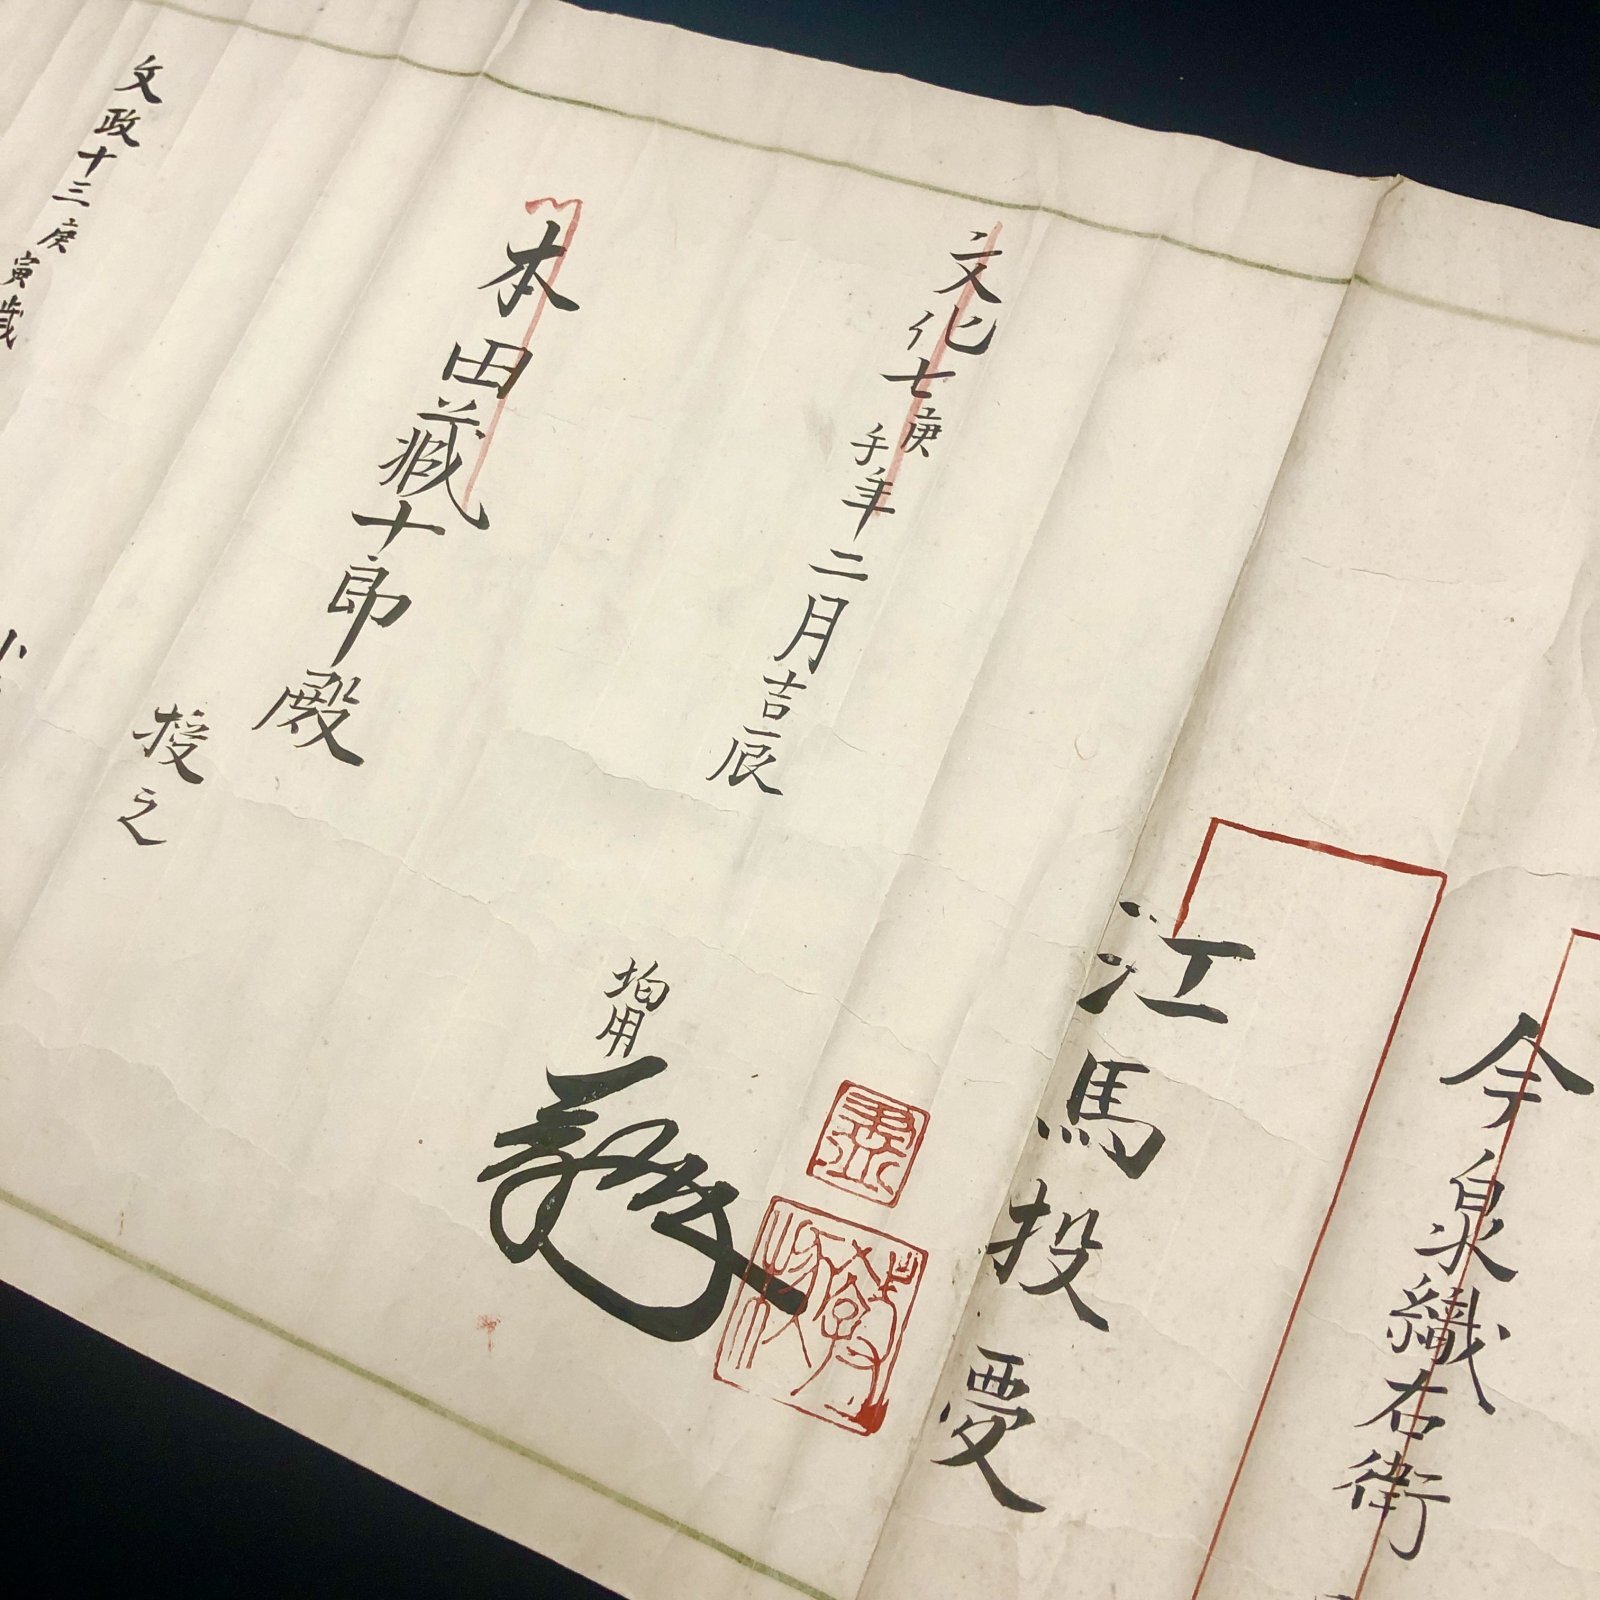 今泉織右衛
江馬投愛
文化七庚午年二月吉辰
本田藏十郎殿
授之
文政十三庚寅歳